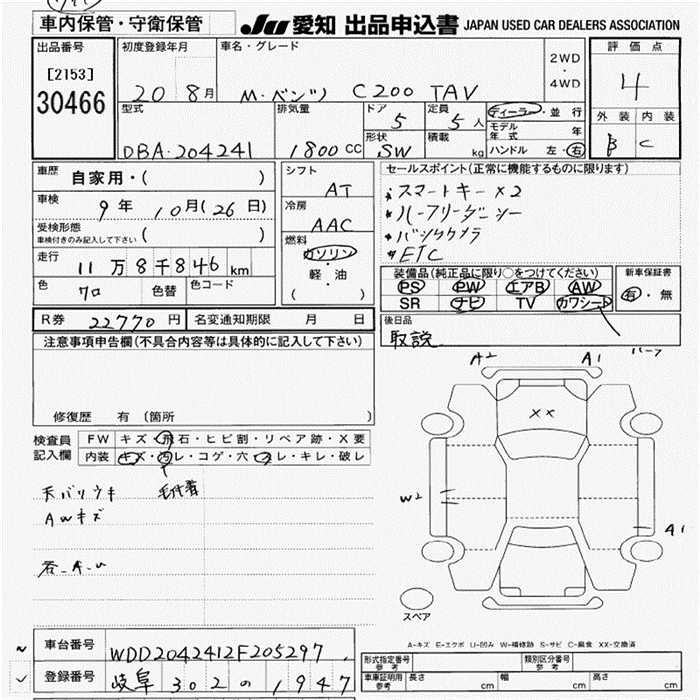 車内保管・守衛保管
JU 愛知 出品申込書 JAPAN USED CAR DEALERS ASSOCIATION
出品番号
[2153]
30466
初度登録年月
20 8月
車名・グレード
M・ベンツ C200 TAV
2WD
・
4WD
評価点
4
外装 内装
B C
型式
DBA-204241
排気量
1800 CC
ドア
5
形状
SW
定員
5 人
積載
kg
ディーラー・並行
モデル年式 年
ハンドル 左・右
車歴
自家用・( )
車検
9年 10月(26日)
受検形態
車検付きのみ記入して下さい ( )
走行
11万8千846 km
色
クロ
色替
色コード
シフト
AT
冷房
AAC
燃料
ガソリン
・
軽・油
( )
セールスポイント(正常に機能するものに限ります)
スマートキー×2
ETC
装備品(純正品に限り○をつけてください)
PS PW エアB AW
SR ナビ TV カワシート
新車保証書
有・無
R券 22770 円
名変通知期限 月 日
後日品
取説
注意事項申告欄(不具合内容等は具体的に記入して下さい)
修復歴 有 (箇所
検査員記入欄
FW キズ・飛石・ヒビ割・リペア跡・X要
内装 キズ・汚レ・コゲ・穴・スレ・キレ・破レ
天バリウキ
AWキズ
A2 A1
××
W2
A1
スペア
A-キズ E-エクボ U-凹み W-補修跡 S-サビ C-腐食 XX-交換済
車台番号 WDD2042412F205297
登録番号 岐阜 302 の 1947
形式指定番号 参考
類別区分番号 参考
車庫証明用 参考 長さ cm 幅 cm 高さ cm